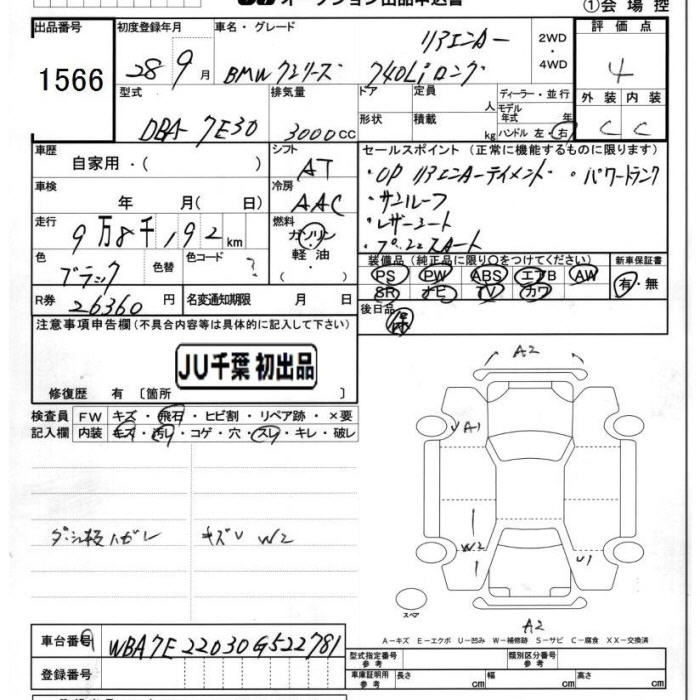 オークション出品申込書 ①会場控
出品番号 初度登録年月 車名・グレード 2WD・4WD 評価点
1566 28 9月 BMW 7シリーズ 740Li ロング リアエンター 4
型式 排気量 ドア 定員 人 ディーラー・並行 外装 内装
DBA-7E30 3000cc 形状 積載 kg モデル年式 年 ハンドル 左・右 C C
車歴 シフト セールスポイント (正常に機能するものに限ります)
自家用・( ) AT ・OP リアエンターテイメント ・パワートランク
車検 冷房 ・サンルーフ
年 月( 日) AAC ・レザーシート
走行 燃料 ・プッシュスタート
9万8千192km ガソリン・軽油・( )
色 色替 色コード 装備品(純正品に限り○をつけてください) 新車保証書
ブラック ? PS PW ABS エアB AW 有・無
SR ナビ TV カワ
R券 26360円 名変通知期限 月 日 後日品
注意事項申告欄(不具合内容等は具体的に記入して下さい)
JU千葉 初出品
修復歴 有〔箇所 〕
検査員 FW キズ・飛石・ヒビ割・リペア跡・×要
記入欄 内装 キズ・汚レ・コゲ・穴・スレ・キレ・破レ
ダッシュ板ハガレ キズU W2
A2
U A1
W2 U1
スペア
A2
A-キズ E-エクボ U-凹み W-補修跡 S-サビ C-腐食 XX-交換済
車台番号 WBA7E22030G522781 型式指定番号 参考 類別区分番号 参考
登録番号 車庫証明用 参考 長さ cm 幅 cm 高さ cm